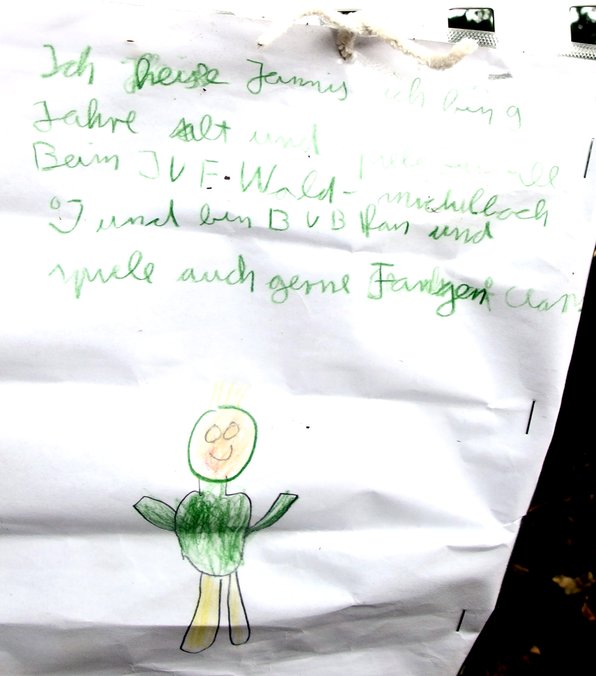 Ich heise Jannis ich bin 9
Jahre alt und
Beim JVF-Wald-michelbach
und bin BVB fan und
spiele auch gerne Fangen